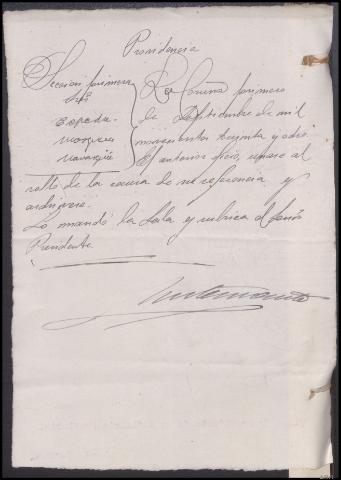 Providencia
Sección primera
Sres
Cepeda
La Coruña primero
de Septiembre de mil
novecientos treinta y ocho
El anterior oficio, unase al
rollo de la causa de su referencia y
archívese.
Lo mandó la Sala y rubrica el Señor
Presidente